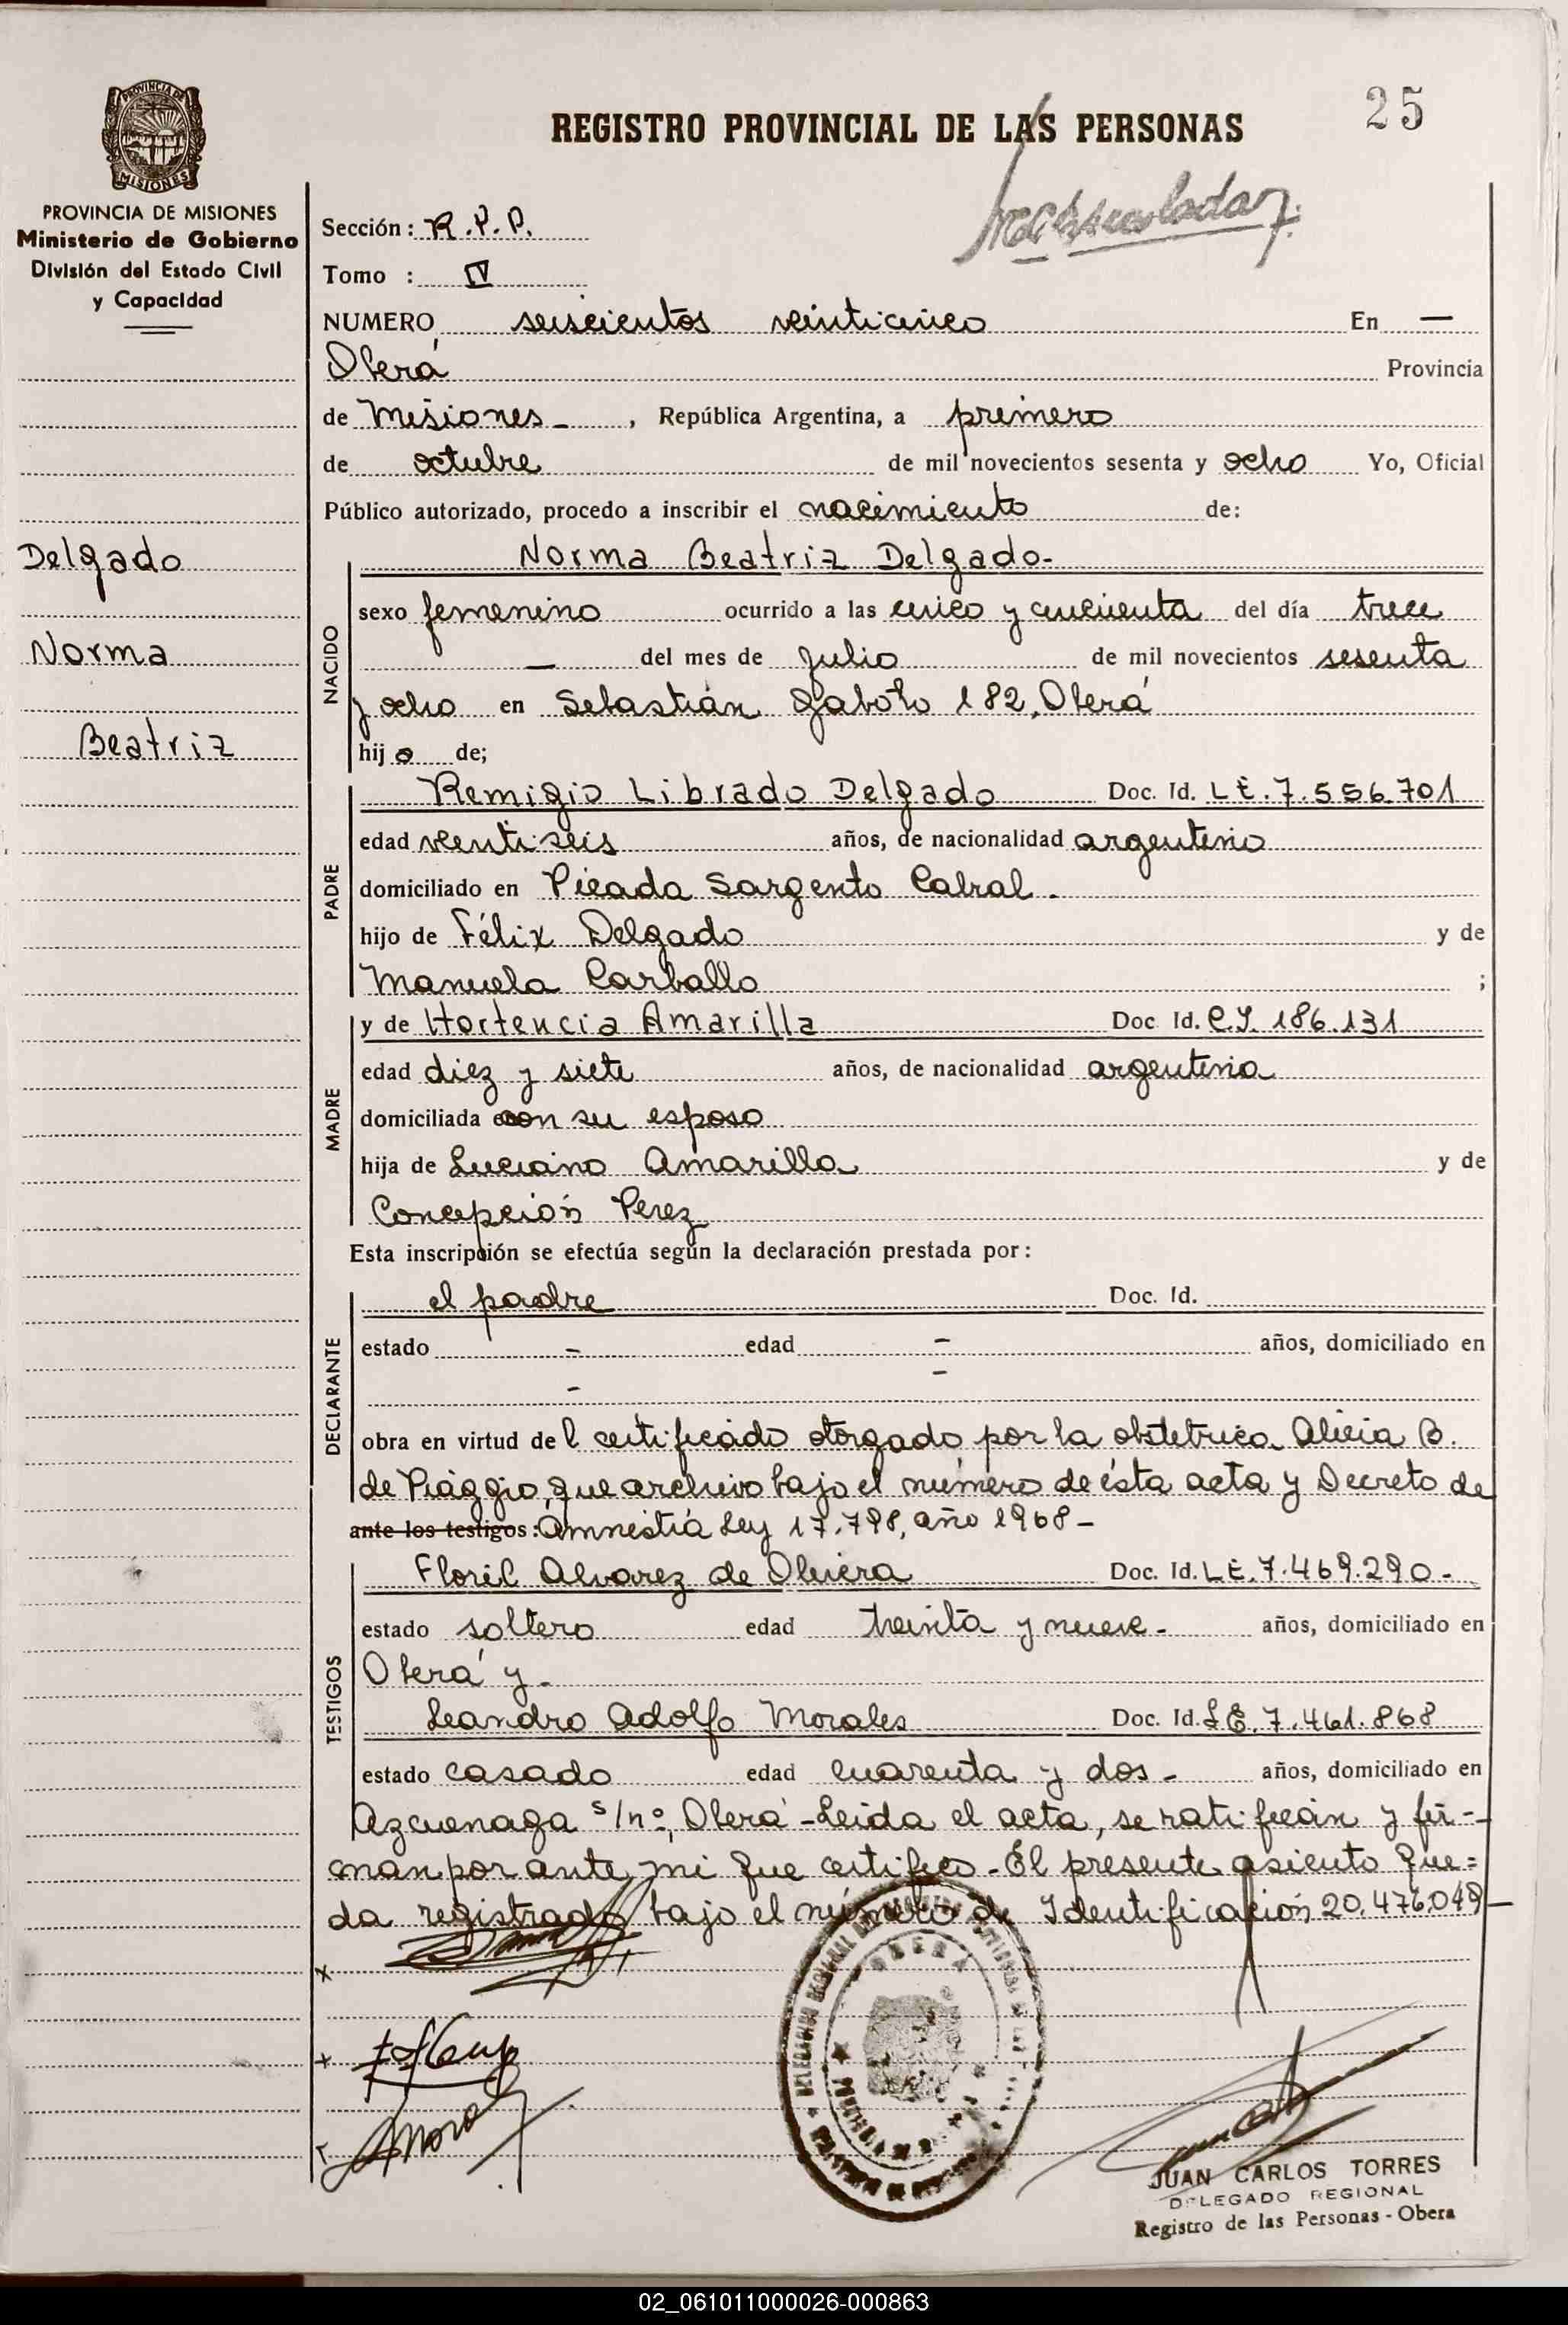 25
REGISTRO PROVINCIAL DE LAS PERSONAS
PROVINCIA DE MISIONES
PROVINCIA DE MISIONES
Ministerio de Gobierno
División del Estado Civil
y Capacidad
Sección: R.P.P.
Tomo : IV
NUMERO seiscientos veinticinco En —
Oberá Provincia
de Misiones - , República Argentina, a primero
de octubre de mil novecientos sesenta y ocho Yo, Oficial
Público autorizado, procedo a inscribir el nacimiento de:
Delgado
Norma
Beatriz
Norma Beatriz Delgado-
NACIDO
sexo femenino ocurrido a las cinco y cincuenta del día trece
— del mes de julio de mil novecientos sesenta
y ocho en Sebastián Gaboto 182, Oberá
hija de;
PADRE
Remigio Librado Delgado Doc. Id. L E. 7.556.701
edad veintiseis años, de nacionalidad argentino
domiciliado en Picada Sargento Cabral.
hijo de Félix Delgado y de
Manuela Carballo ;
MADRE
y de Hortencia Amarilla Doc Id. C.I. 186.131
edad diez y siete años, de nacionalidad argentina
domiciliada con su esposo
hija de Luciano Amarilla y de
Concepción Perez
Esta inscripción se efectúa según la declaración prestada por:
DECLARANTE
el padre Doc. Id.
estado - edad - años, domiciliado en
- -
obra en virtud del certificado otorgado por la obstetrica Alicia B.
de Piaggio, que archivo bajo el número de ésta acta y Decreto de
ante los testigos: Amnestía Ley 17.798, año 1968-
TESTIGOS
Alvarez de Olivera Doc. Id. L E. 7.469.290-
estado soltero edad treinta y nueve- años, domiciliado en
Oberá y-
Leandro Adolfo Morales Doc. Id. L E. 7.461.868
estado casado edad cuarenta y dos- años, domiciliado en
Azcuenaga s/nº, Oberá-Leida el acta, se ratifican y fir-
man por ante mi que certifico-El presente asiento que=
da registrado bajo el número de Identificación 20.476.049—
OBERA
JUAN CARLOS TORRES
DELEGADO REGIONAL
Registro de las Personas - Obera
02_061011000026-000863